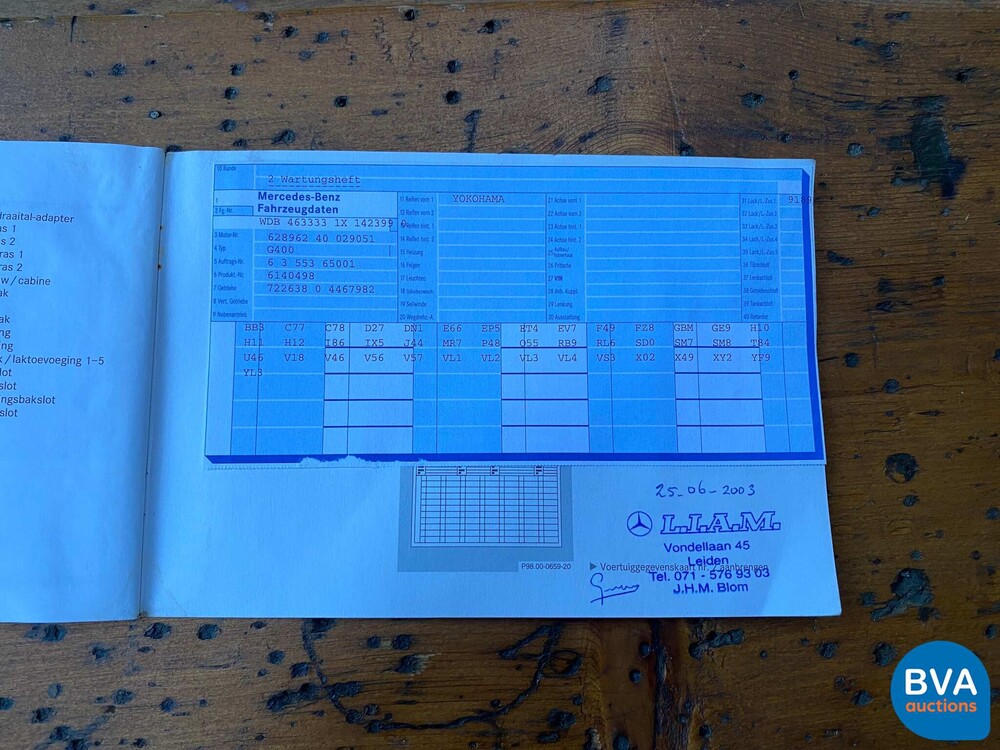 draaital-adapter
as 1
s 2
ras 1
as 2
w / cabine
ak
ak
ng
ing
k / laktoevoeging 1–5
lot
slot
ingsbakslot
slot
10 Runde
2 Wartungsheft
1 Mercedes-Benz
Fahrzeugdaten
2 Fg.-Nr.
WDB 463333 1X 142399
3 Motor-Nr. 628962 40 029051
4 Typ G400
5 Auftrags-Nr. 6 3 553 65001
6 Produkt.-Nr. 6140498
7 Getriebe 722638 0 4467982
8 Vert. Getriebe
9 Nebenantrieb
11 Reifen vorn 1 YOKOHAMA
12 Reifen vorn 2
13 Reifen hint. 1
14 Reifen hint. 2
15 Heizung
16 Felgen
17 Leuchten
19 Seilwinde
21 Achse vorn 1
22 Achse vorn 2
23 Achse hint. 1
24 Achse hint. 2
26 Pritsche
27 VIN
28 Anh. Kuppl.
29 Lenkung
30 Ausstattung
31 Lack/L.-Zus.1
32 Lack/L.-Zus.2
33 Lack/L.-Zus.3
34 Lack/L.-Zus.4
35 Lack/L.-Zus.5
36 Türschloß
40 Retarder
BB3 C77 C78 D27 DN1 E66 EP5 HT4 EV7 F49 FZ8 GBM GE9 H10
H11 H12 I86 IX5 J44 MR7 P48 Q55 RB9 RL6 SD0 SM7 SM8 T84
U46 V18 V46 V56 V57 VL1 VL2 VL3 VL4 VS3 X02 X49 XY2 YF9
YL3
P98.00-0659-20
25-06-2003
L.I.A.M.
Vondellaan 45
Leiden
▶ Voertuiggegevenskaart nr. 2 aanbrengen
Tel. 071 - 576 93 03
J.H.M. Blom
BVA
auctions